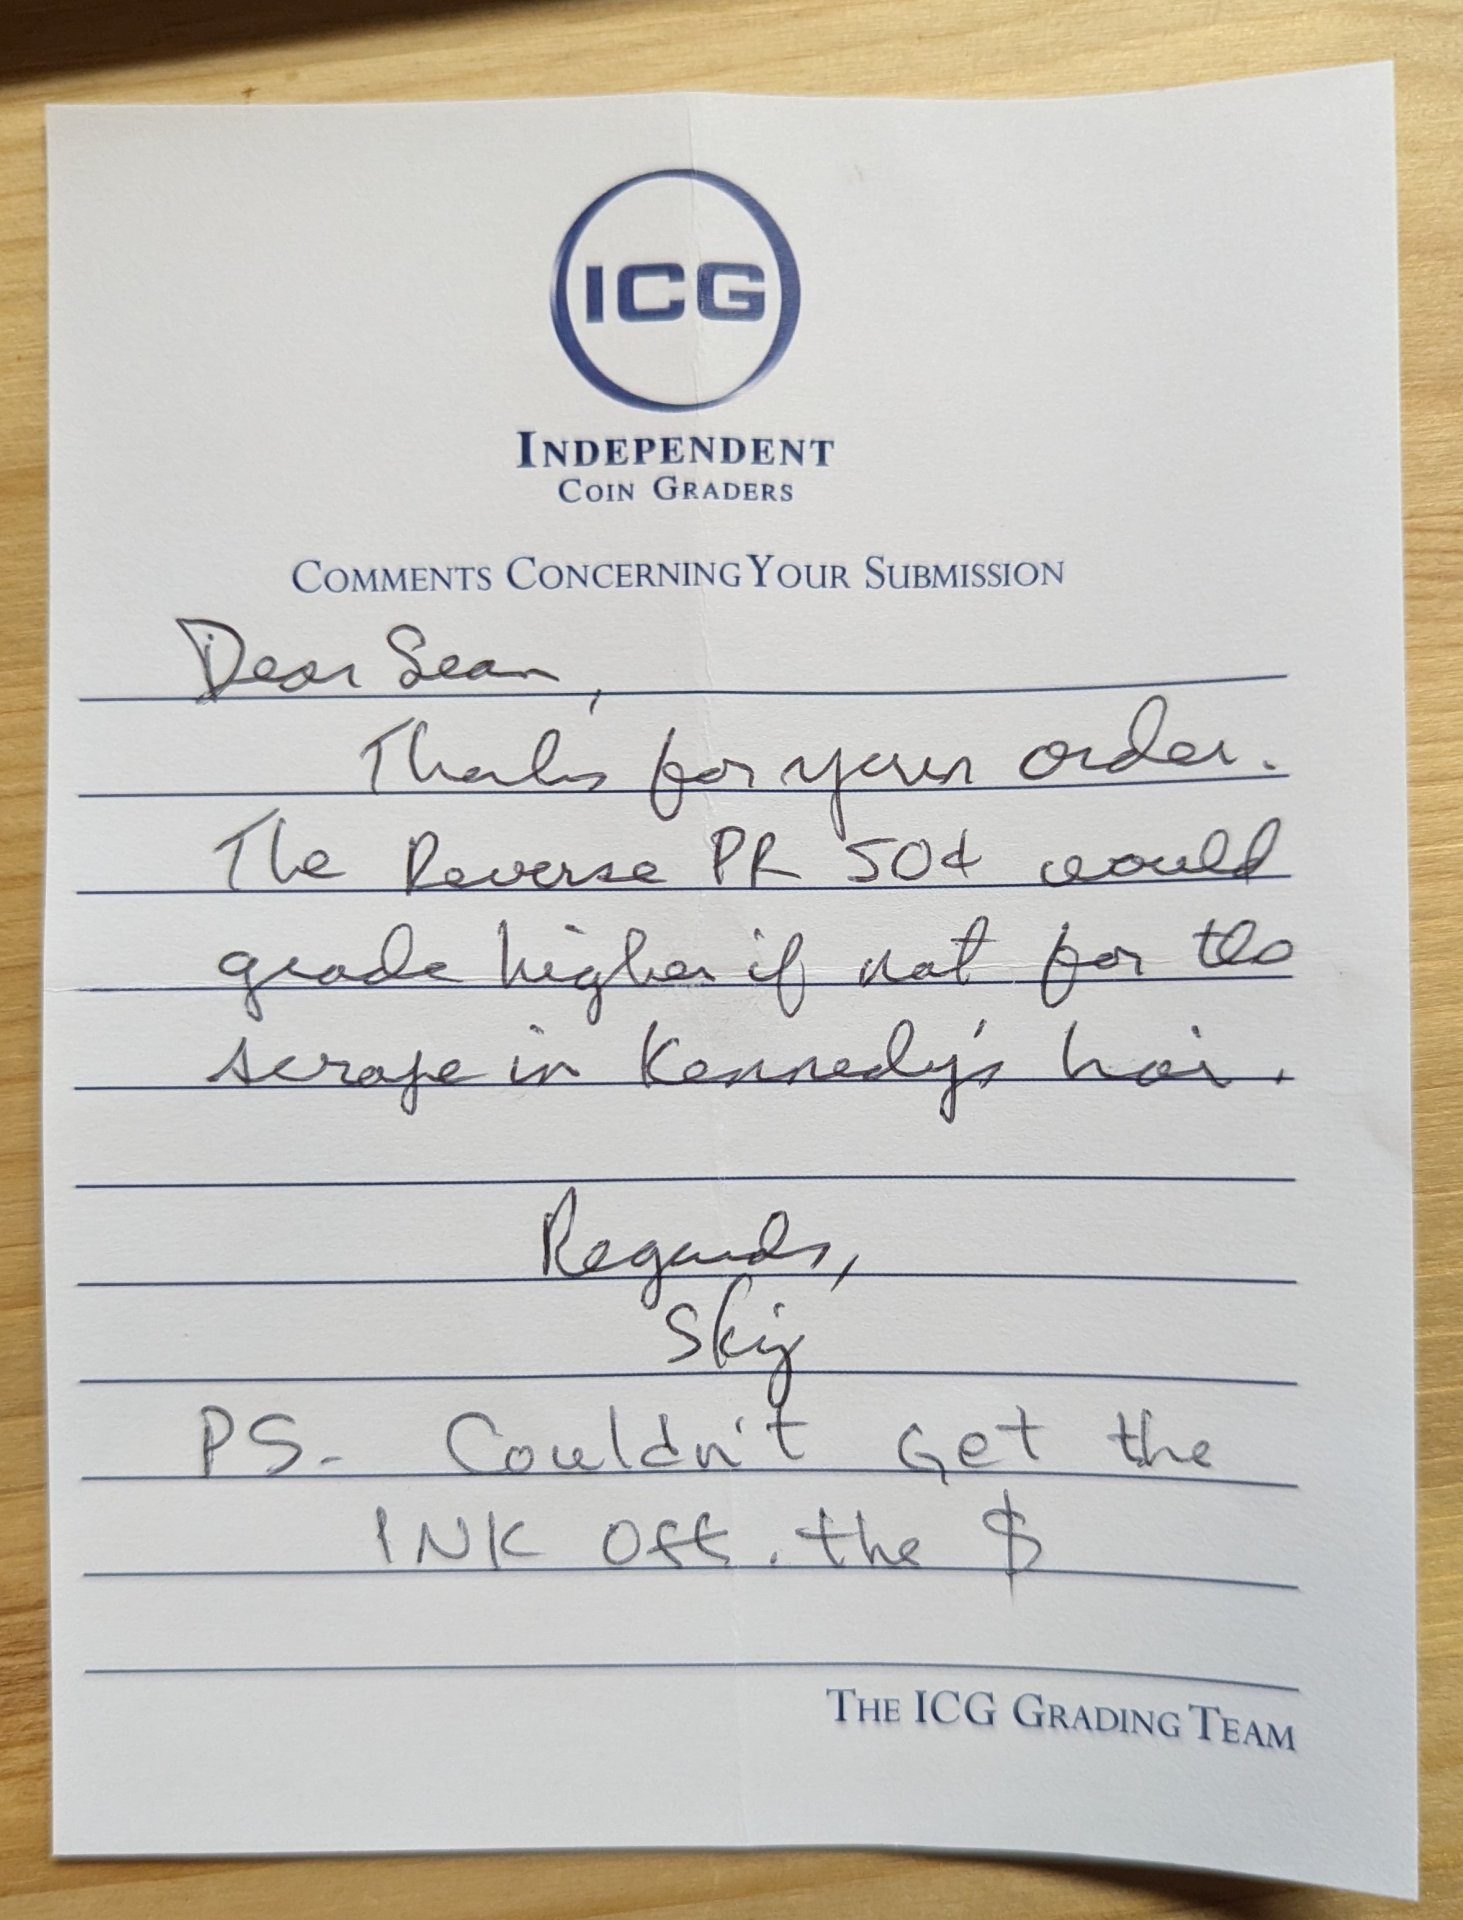 ICG
INDEPENDENT
COIN GRADERS
COMMENTS CONCERNING YOUR SUBMISSION
Dear Sean,
Thanks for your order.
The Reverse PR 50¢ would
grade higher if not for the
scrape in Kennedy's hair.
Regards,
Skip
PS. Couldn't Get the
INK Off. the $
THE ICG GRADING TEAM